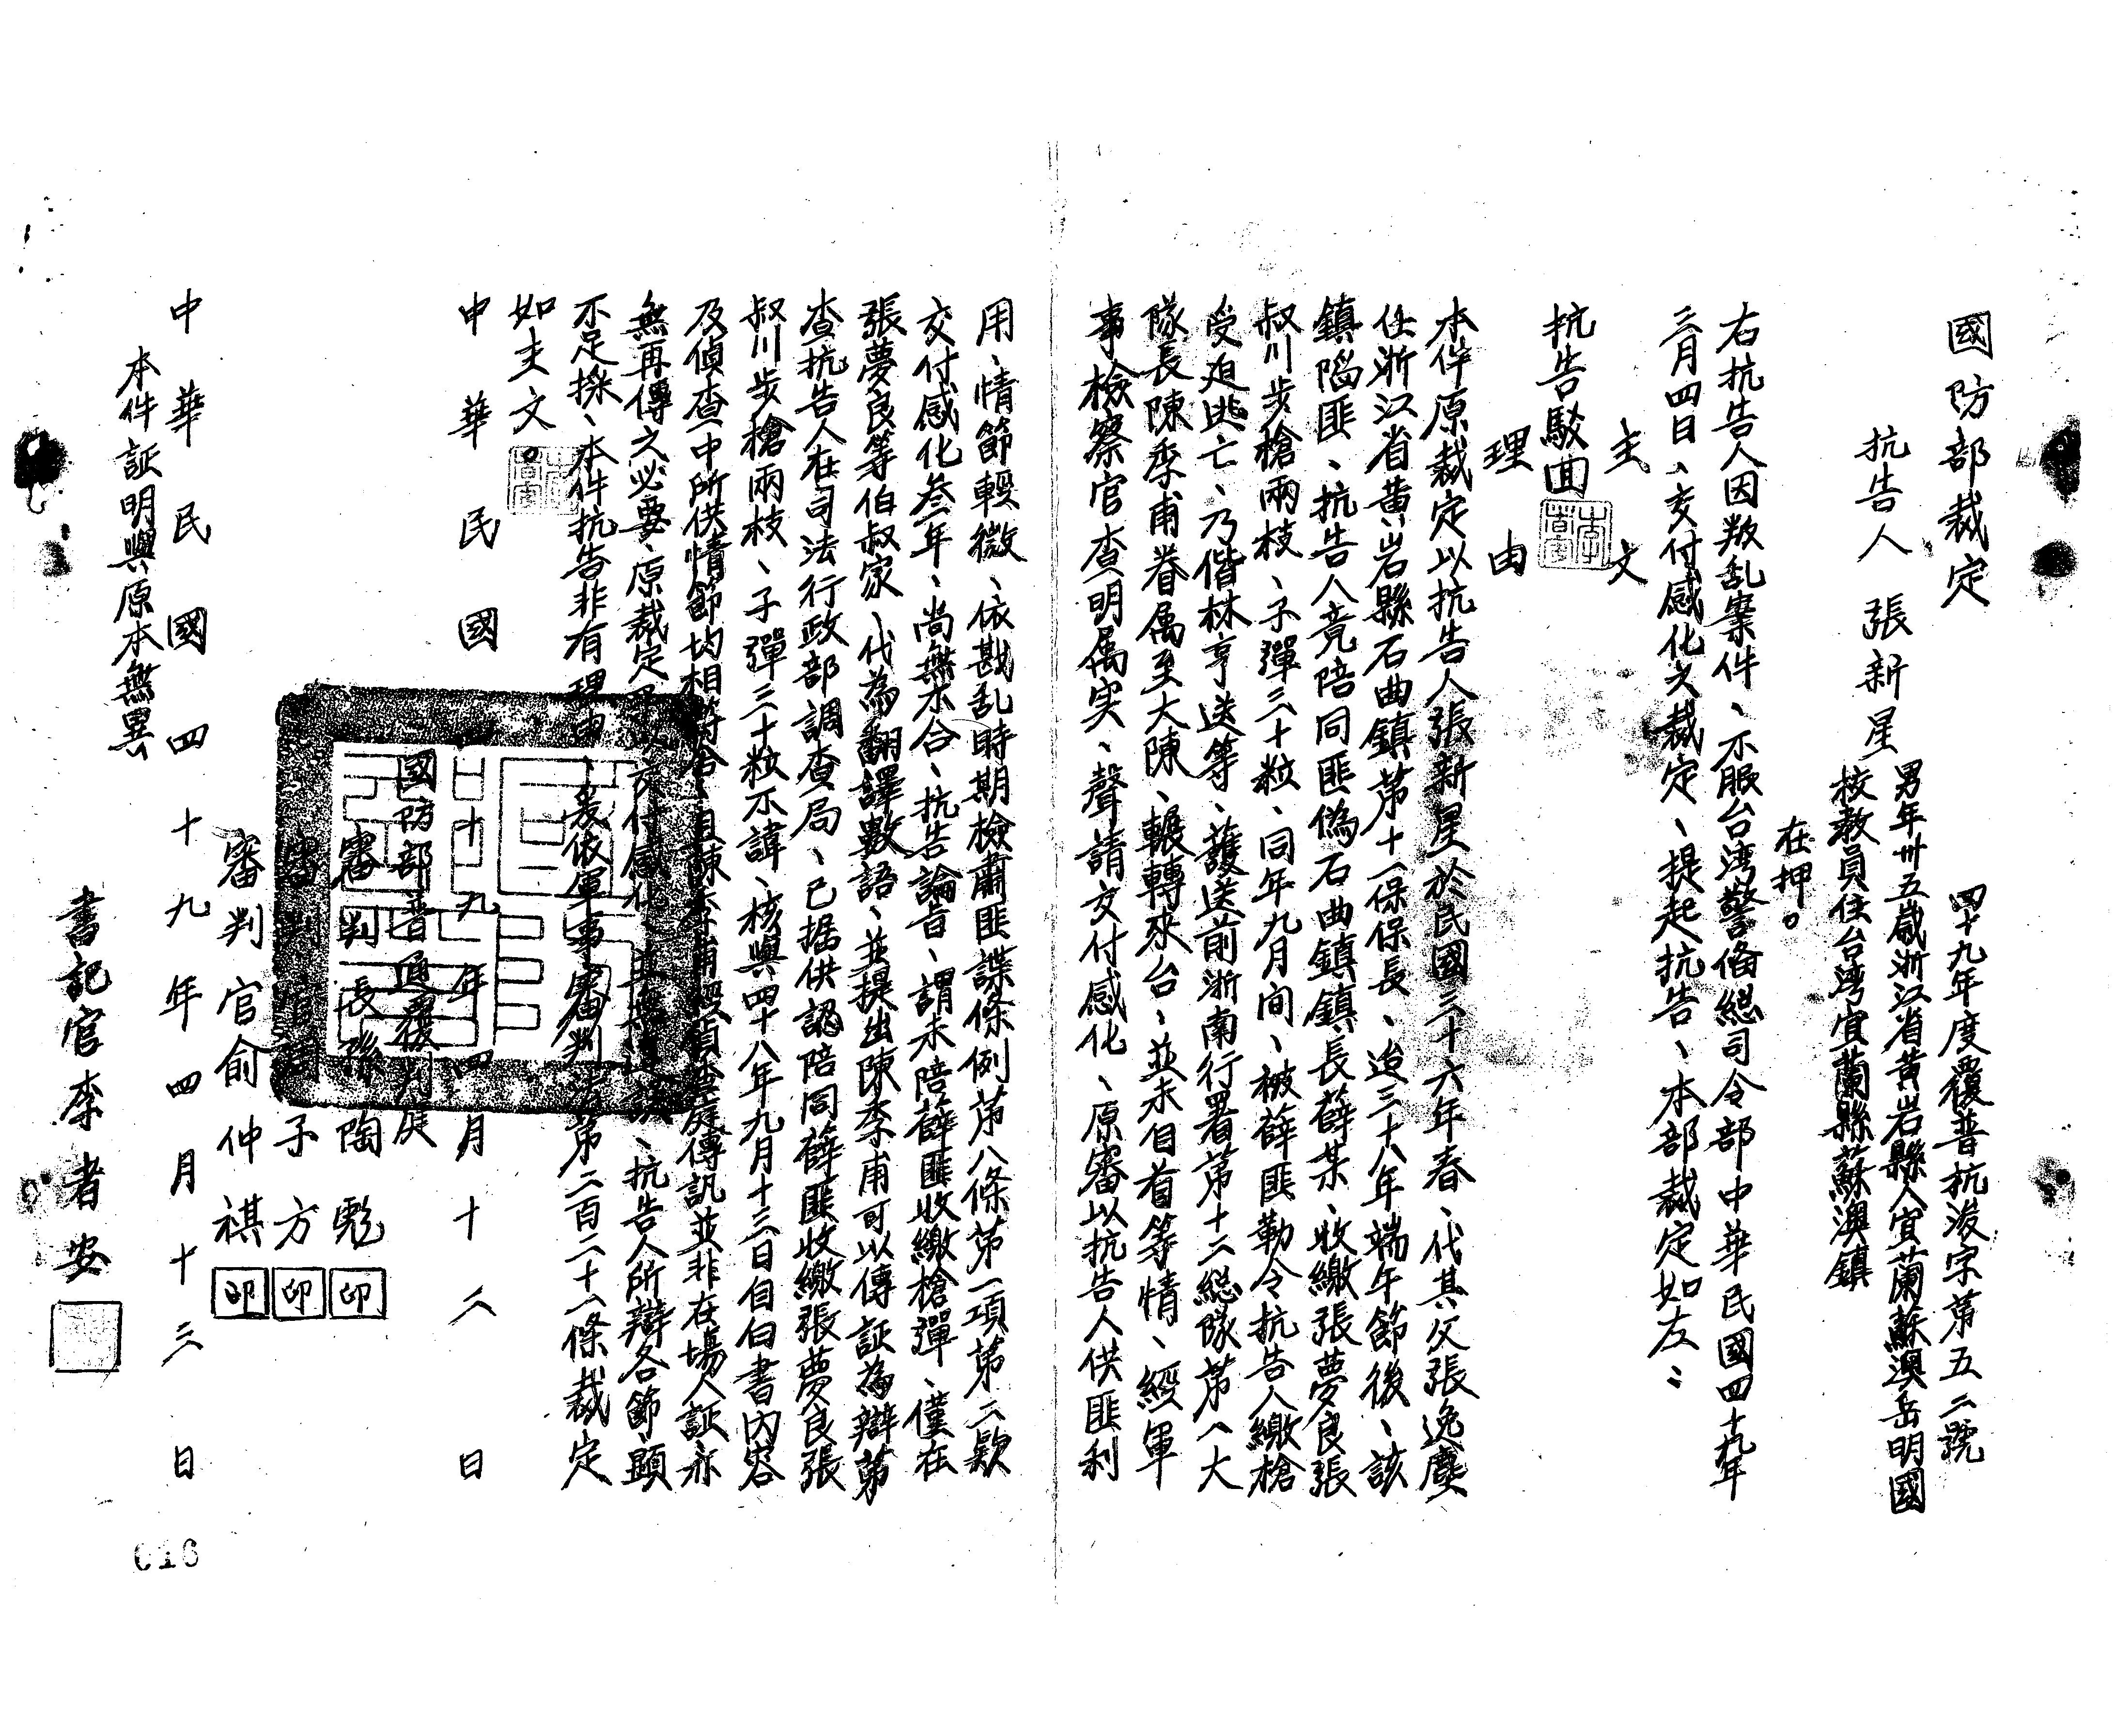 國防部裁定
四十九年度覆普抗浚字第五二號
抗告人 張新星
男年卅五歲浙江省黃岩縣人宜蘭蘇澳岳明國
校教員住台湾宜蘭縣蘇澳鎮
在押。
右抗告人因叛乱案件、不服台湾警俻總司令部中華民國四十九年
三月四日、交付感化之裁定、提起抗告、本部裁定如左：
主文
抗告駁回
理由
本件原裁定以抗告人張新星於民國三十六年春、代其父張逸塵
任浙江省黃岩縣石曲鎮第十一保保長、迨三十八年端午節後、該
鎮陷匪、抗告人竟陪同匪偽石曲鎮鎮長薛某、收繳張夢良張
叔川步槍兩枝、子彈三十粒、同年九月间、被薛匪勒令抗告人繳槍
受迫逃亡、乃偕林亨送等、護送前浙南行署第十二總隊第八大
隊長陳季甫眷属至大陳、輾轉來台、並未自首等情、經軍
事檢察官查明属实、聲請交付感化、原審以抗告人供匪利
用、情節輕微、依戡乱時期檢肅匪諜條例第八條第一項第二款
交付感化叁年、尚無不合、抗告論旨、謂未陪薛匪收繳槍彈、僅在
張夢良等伯叔家、代為翻譯數語、並提出陳季甫可以傳証為辯第
查抗告人在司法行政部調查局、已据供認陪同薛匪收繳張夢良張
叔川步槍兩枝、子彈三十粒不諱、核與四十八年九月十三日自白書內容
及偵查中所供情節均相符合、且陳季甫經偵查庭傳訊並非在場人証亦
無再傳之必要、原裁定予以交付感化、抗告人所辯各節、顯
不足採、本件抗告非有理由、爰依軍事審判法第二百二十一條裁定
如主文。
中華民國四十九年四月十八日
國防部普通覆判庭
審判長孫陶彪 印
審判官周子方 印
審判官俞仲祺 印
中華民國四十九年四月十三日
本件証明與原本無異
書記官李者安
016